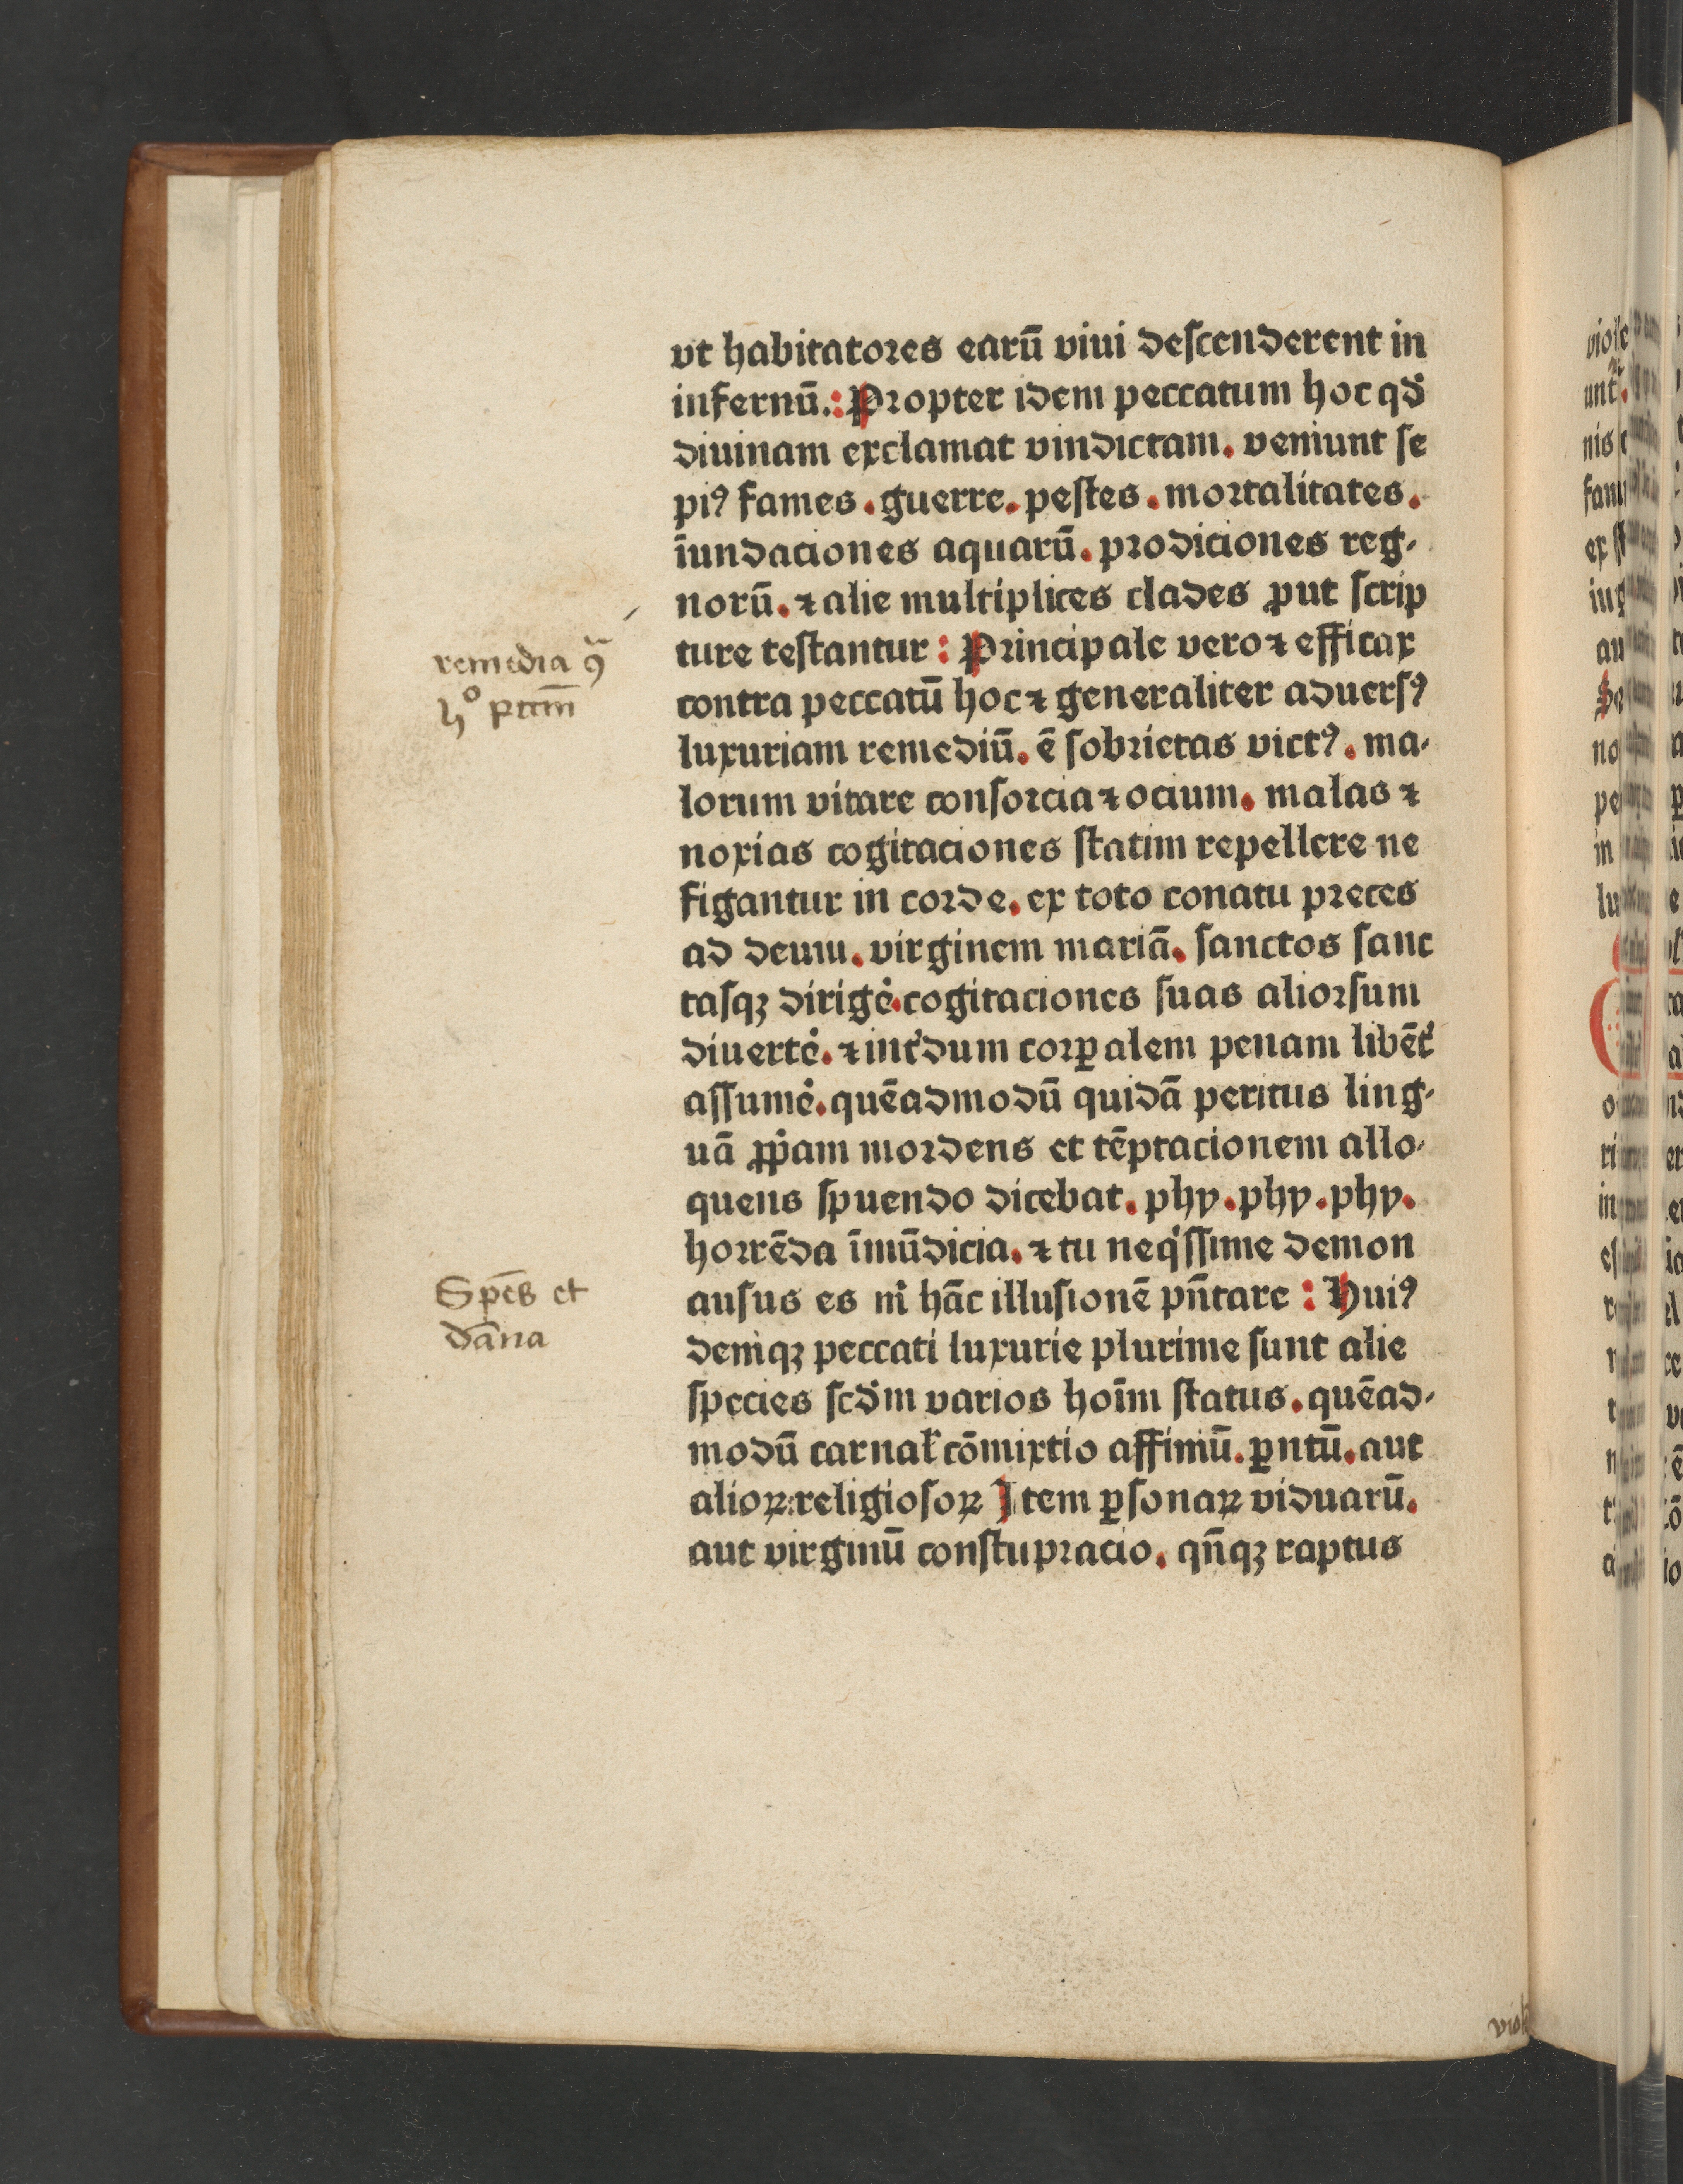 vt habitatores earū viui descenderent in
infernū.: Propter idem peccatum hoc qđ
diuinam exclamat vindictam. veniunt se
piꝰ fames. guerre. pestes. mortalitates.
īundaciones aquarū. prodiciones reg-
norū. ⁊ alie multiplices clades ꝓut scrip
ture testantur: Principale vero ⁊ efficax
contra peccatū hoc ⁊ generaliter aduersꝰ
luxuriam remediū. ē sobrietas victꝰ. ma-
lorum vitare consorcia ⁊ ocium. malas ⁊
noxias cogitaciones statim repellere ne
figantur in corde. ex toto conatu preces
ad deum. virginem mariā. sanctos sanc
tasqꝫ dirige͛. cogitaciones suas aliorsum
diuerte͛. ⁊ int͛dum corꝑalem penam libēt͛
assume͛. quēadmodū quidā peritus ling-
uā ꝓpͥam mordens et tēptacionem allo-
quens spuendo dicebat. phy. phy. phy.
horrēda īmūdicia. ⁊ tu neqͥssime demon
ausus es mͥ hāc illusionē pn̄tare: Huiꝰ
deniqꝫ peccati luxurie plurime sunt alie
species scđm varios hoīm status. quēad-
modū carnal̛ cōmixtio affiniū. ꝑntū. aut
alioꝝ: religiosoꝝ Item ꝑsonaꝝ viduarū.
aut virginū constupracio. qn̄qꝫ raptus
remedia ꝯ̄
hͦ pctm̄
Spēs et
dāna